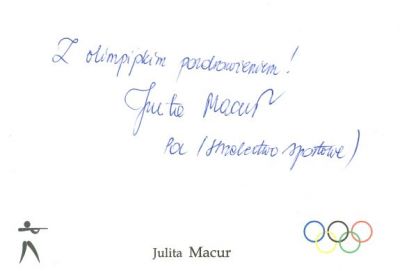 Z olimpijskim pozdrowieniem!
Julita Macur
Pol (strzelectwo sportowe)
Julita Macur